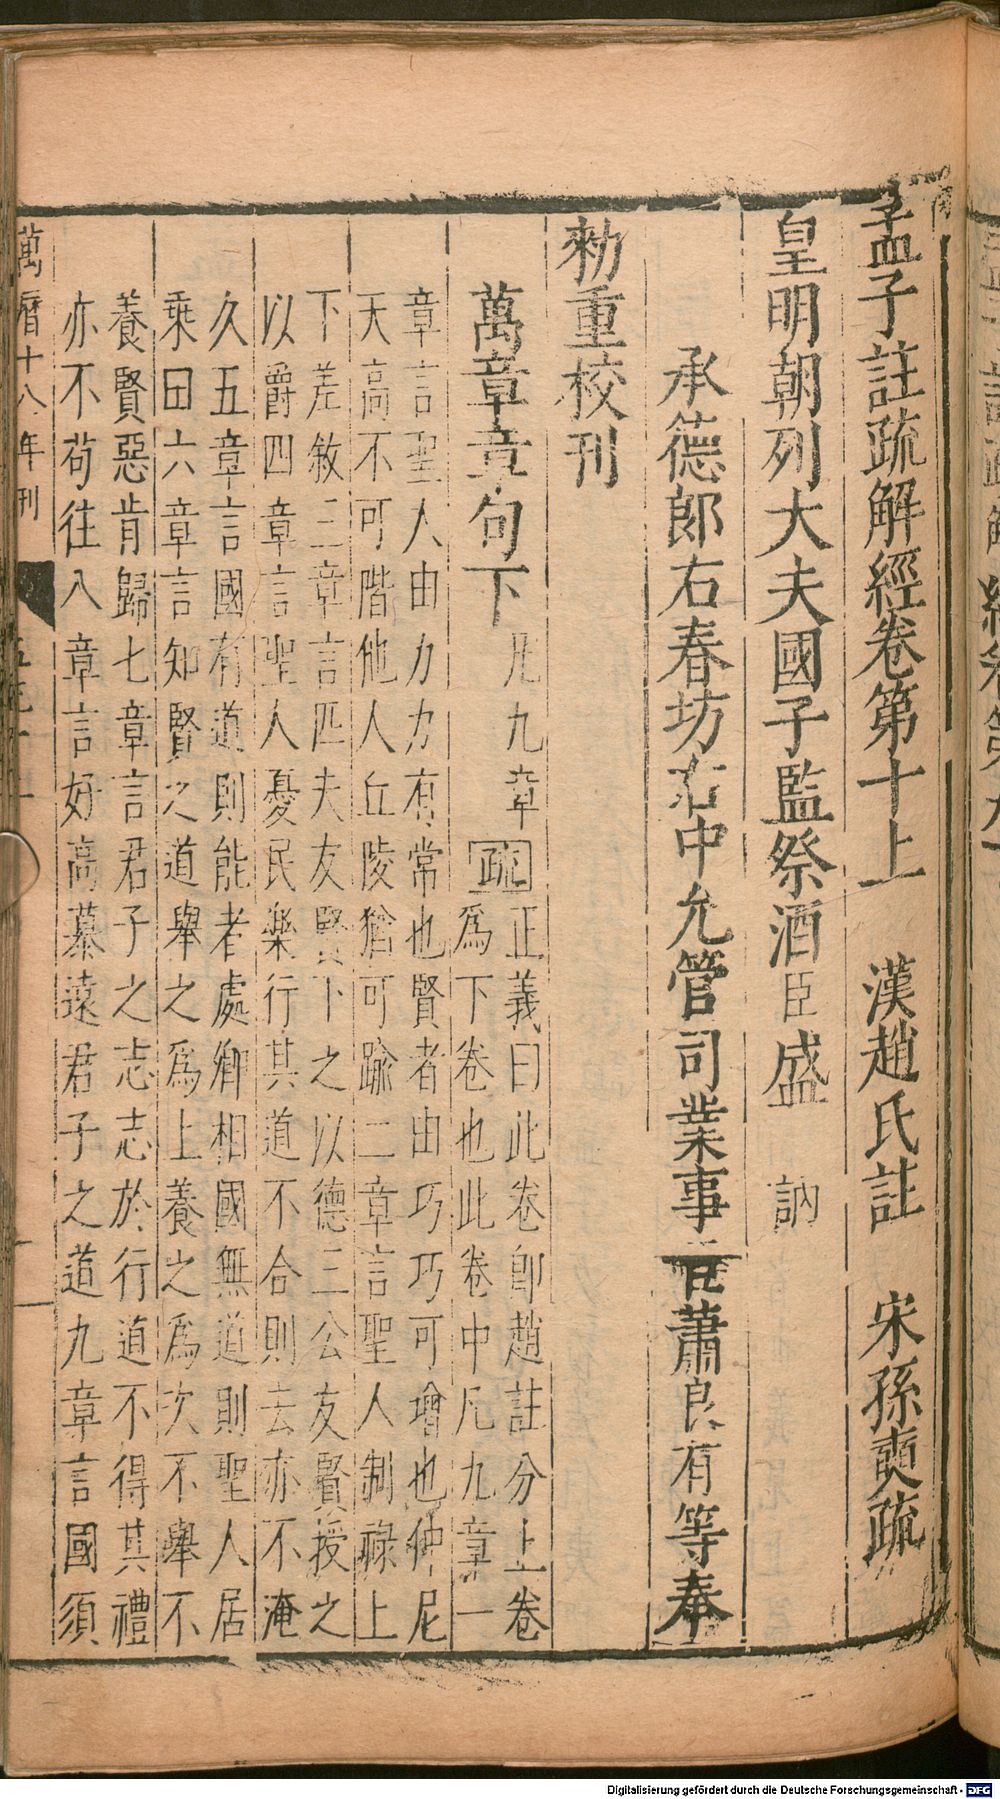 孟子註疏解經卷第十上　漢趙氏註　宋孫奭疏
皇明朝列大夫國子監祭酒臣盛　訥
承德郎右春坊右中允管司業事臣蕭良有等奉
勑重校刊
萬章章句下　凡九章　疏　正義曰此卷卽趙註分上卷
爲下卷也此卷中凡九章一
章言聖人由力力有常也賢者由巧巧可增也仲尼
天高不可階他人丘陵猶可踰二章言聖人制祿上
下差敘三章言匹夫友賢下之以德三公友賢授之
以爵四章言聖人憂民樂行其道不合則去亦不淹
久五章言國有道則能者處卿相國無道則聖人居
乘田六章言知賢之道舉之爲上養之爲次不舉不
養賢惡肯歸七章言君子之志志於行道不得其禮
亦不苟往八章言好高慕遠君子之道九章言國須
萬曆十八年刊
Digitalisierung gefördert durch die Deutsche Forschungsgemeinschaft - DFG